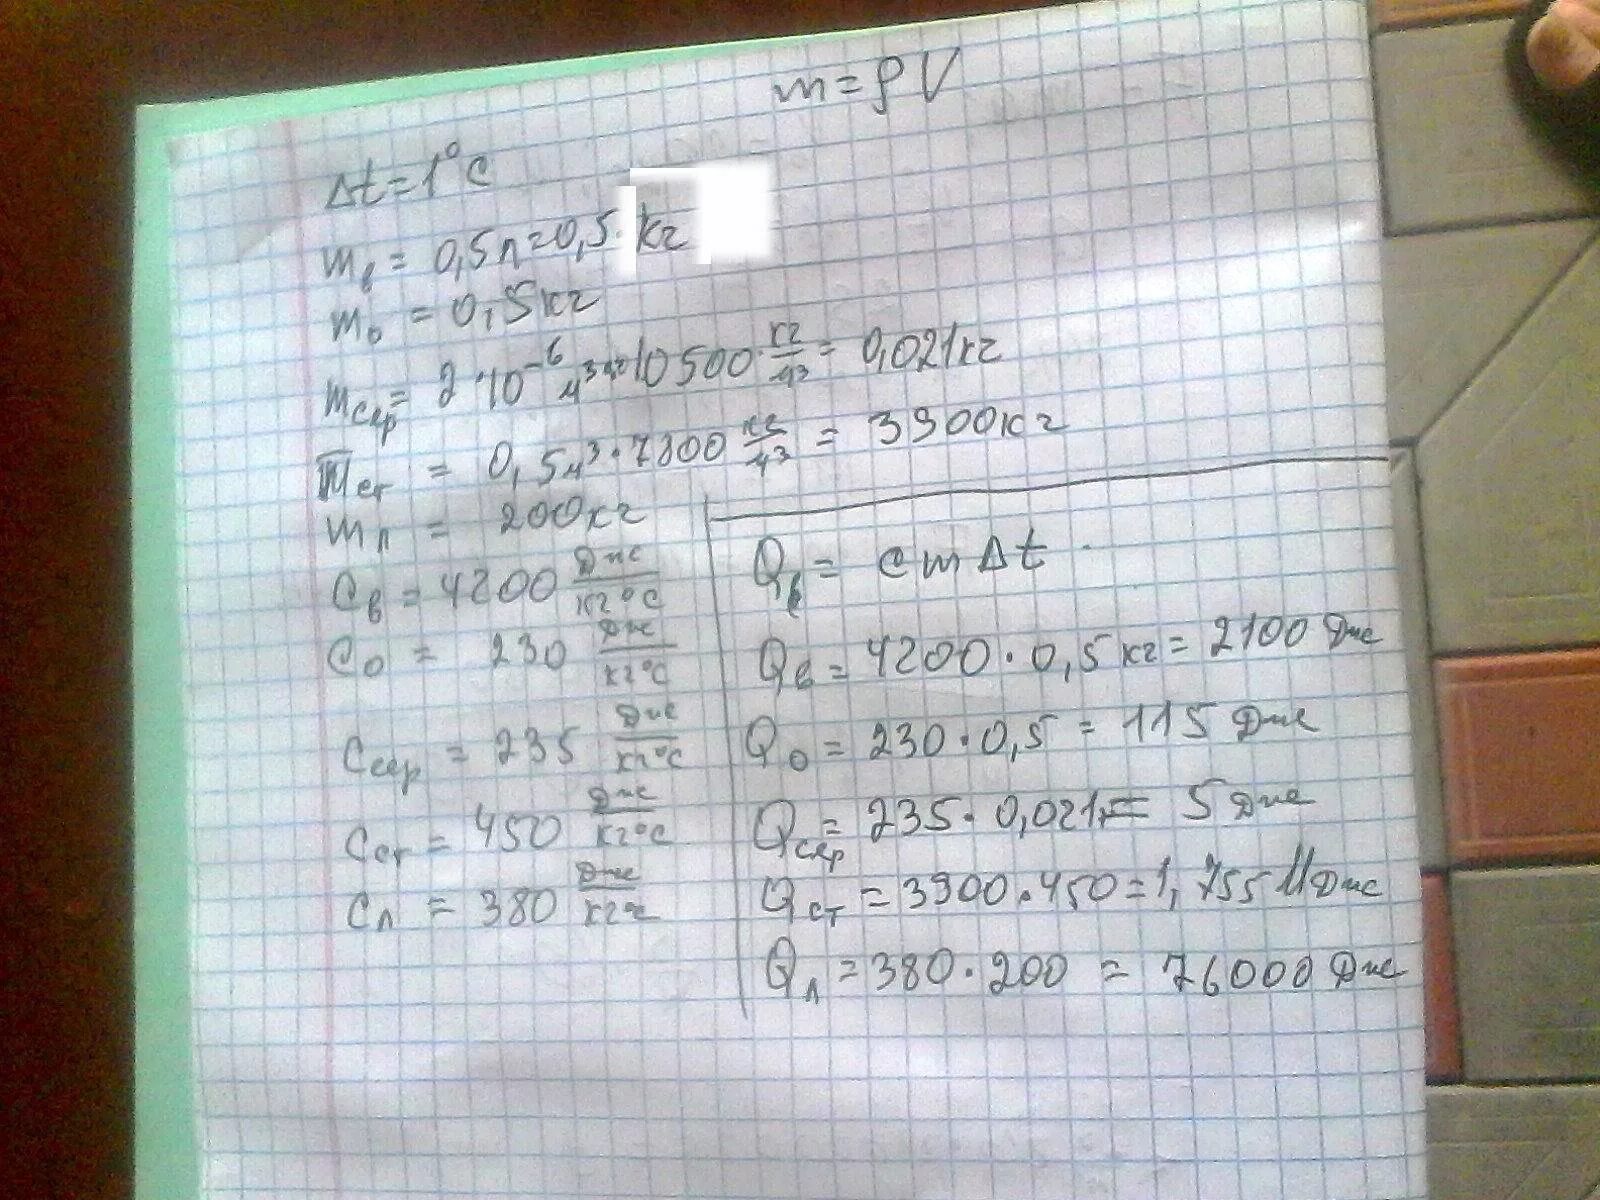 m = ρV
Δt = 1°C
mв = 0,5л = 0,5 · кг
mо = 0,5кг
mсер = 2 · 10⁻⁶ м³ · 10500 · кг/м³ = 0,021кг
mст = 0,5м³ · 7800 кг/м³ = 3900кг
mл = 200кг
cв = 4200 Дж/кг°C
cо = 230 Дж/кг°C
cсер = 235 Дж/кг°C
cст = 450 Дж/кг°C
cл = 380
Qв = cmΔt
Qв = 4200 · 0,5 кг = 2100 Дж
Qо = 230 · 0,5 = 115 Дж
Qсер = 235 · 0,021 = 5 Дж
Qст = 3900 · 450 = 1,755 МДж
Qл = 380 · 200 = 76000 Дж